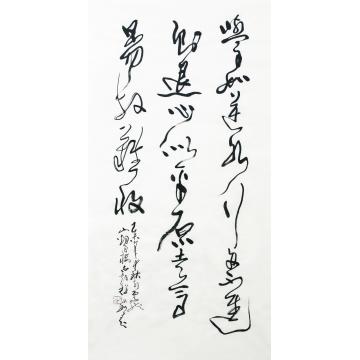 學如逆水行舟不進
則退心似平原走馬
易放難收